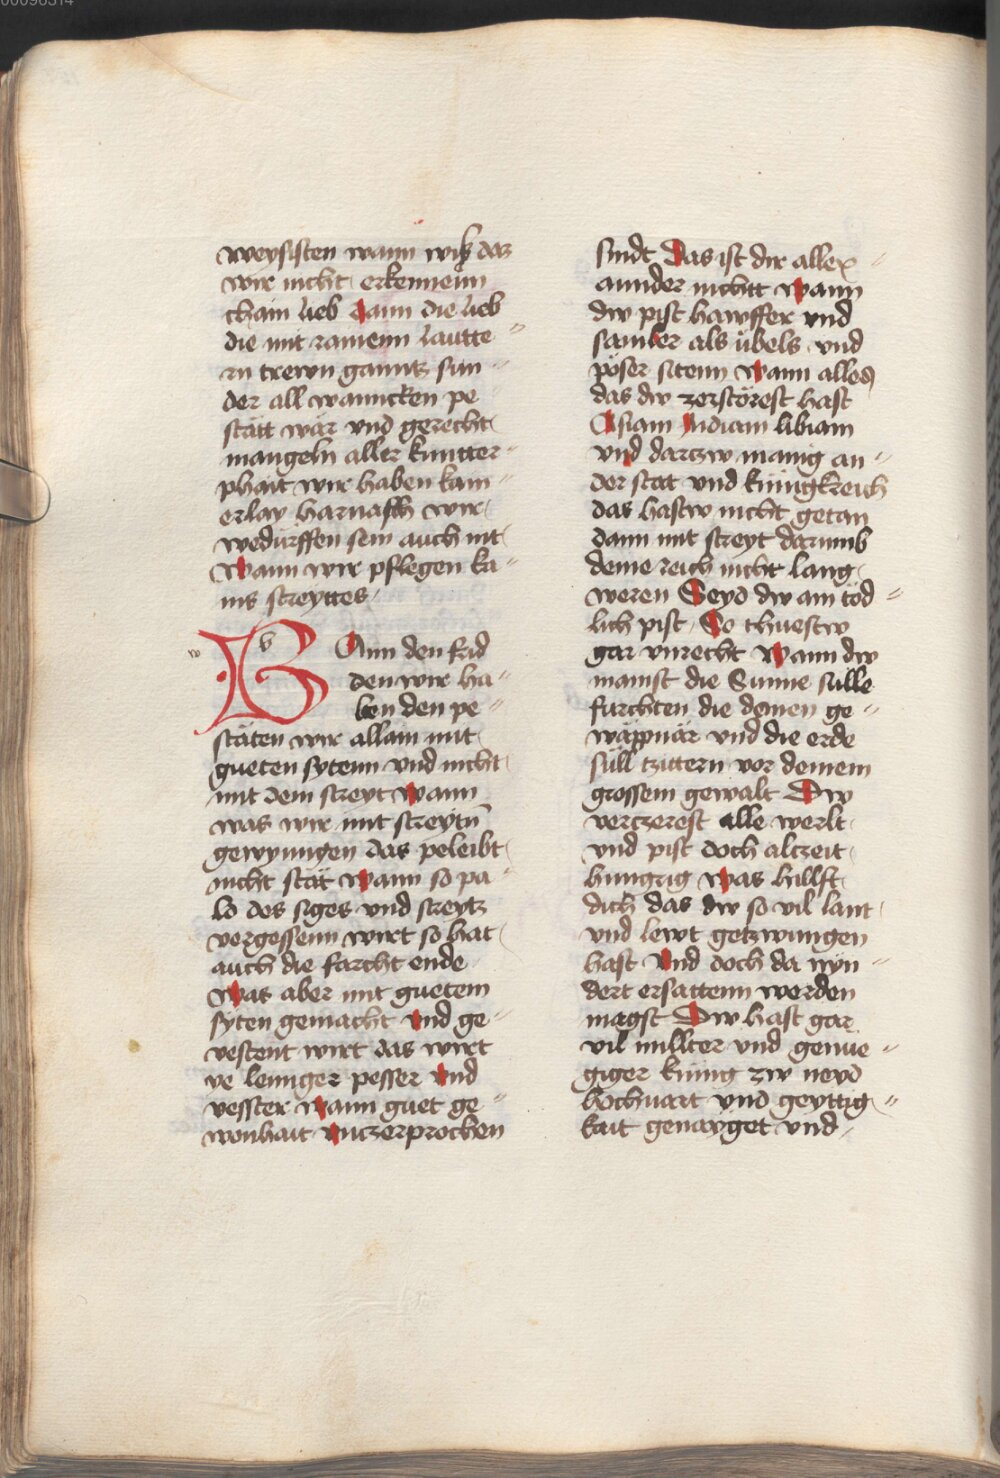 00096314
weysisten wann wiß das
wir nicht erkennenn
chain lieb dann die lieb
die mit rainenn lautte
rn trewn ganntz sun
der all wanncken pe
stätt wär vnd gerecht
mangeln aller kuntter
phait wir haben kain
erlay harnasch wir
wedurffen sein auch nit
Wann wir pflegen ka
ins streyttes
w
v
Ann den frid
den wir ha
ben den pe
stäten wir allain mit
gueten sytenn vnd nicht
mit dem streyt Wann
was wir mit streytn̄
gewynngen das peleibt
nicht stät Wann so pa
ld des siges vnd streytz
vergessenn wirt so hat
auch die farcht ende
Was aber mit guetem
syten gemacht vnd ge
vestent wirt das wirt
ye lennger pesser vnd
vesster Wann guet ge
wonhait vnczerprochen
sindt Das ist dir alles
annder nichtt Wann
dw pist hawffer vnd
samber als übels vnd
pöser sitenn Wann alles
das dw zerstörest hast
Asiam Indiam libiam
vnd dartzw manig an
der stat vnd künigkreich
das hastw nicht getan
dann mit streyt darumb
deine reich nicht lang
weren Seyd dw ain töd
lich pist So thuestw
gar vnrecht Wann dw
mainst die Sunne sülle
furchten die deinen ge
wäppnär vnd die erde
süll tzittern vor deinem
grossem gewalt Dw
verczerest alle werlt
vnd pist doch alczeit
hungrig Was hillft
dich das dw so vil lant
vnd lewt getzwungen
hast Vnd doch da nyn
dert ersattenn werden
magst Dw hast gar
vil millter vnd genue
giger künig zw neyd
hochuart vnd geyttig
kait genayget vnd